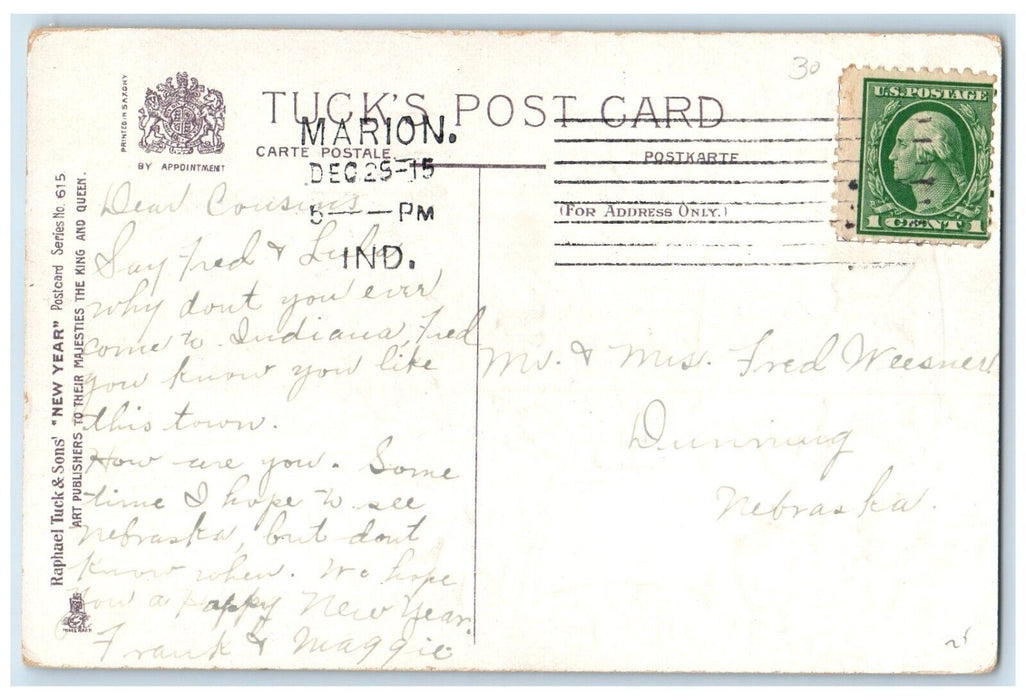 30
PRINTED IN SAXONY
BY APPOINTMENT
TUCK'S POST CARD
CARTE POSTALE
POSTKARTE
(FOR ADDRESS ONLY.)
MARION.
DEC 29-15
5 — — PM
IND.
U.S. POSTAGE
1 CENT 1
Raphael Tuck & Sons' "NEW YEAR" Postcard Series No. 615
ART PUBLISHERS TO THEIR MAJESTIES THE KING AND QUEEN.
Dear Cousins
Say Fred & Lula
why dont you ever
come to Indiana, Fred
you know you like
this town.
How are you. Some
time I hope to see
Nebraska, but dont
know when. We hope
you a Happy New Year.
Frank & Maggie
Mr. & Mrs. Fred Weesner
Dunning
Nebraska.